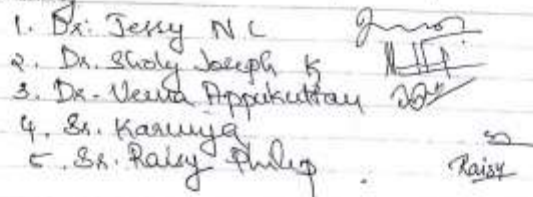 1. Dr. Jessy N C
2. Dr. Sholy Joseph K
3. Dr. Veena Appukuttan
4. Sr. Karunya
5. Sr. Raisy Philip . Raisy